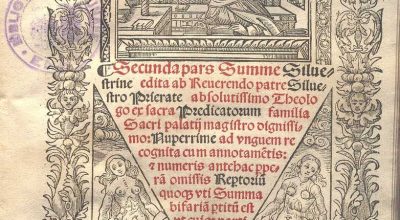 BIBLIO
Secunda pars Summe Silue-
strine edita ab Reuerendo patre Silue-
stro Prierate absolutissimo Theolo
go ex sacra Predicatorum familia
Sacri palatij magistro dignissi-
mo: Nuperrime ad vnguem re-
cognita cum annotamētis:
& numeris antehac ppe-
rā omissis Reptoriū
quoq; vti Summa
bifariā ptitū est